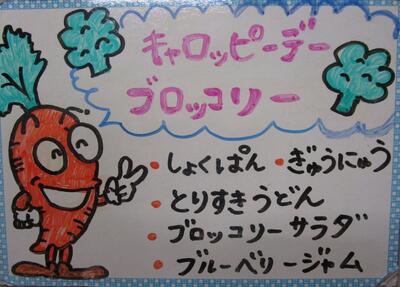 キャロッピーデー
ブロッコリー
・しょくぱん ・ぎゅうにゅう
・とりすきうどん
・ブロッコリーサラダ
・ブルーベリージャム